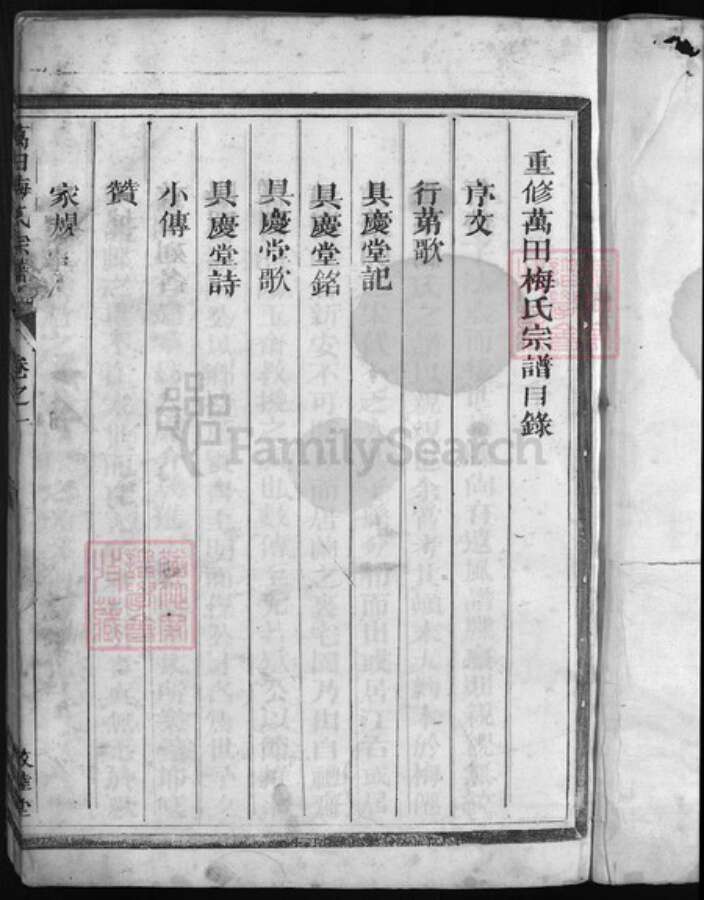 重修萬田梅氏宗譜目錄
序文
行苐歌
具慶堂記
具慶堂銘
具慶堂歌
具慶堂詩
小傳
贊
家規
萬田梅氏宗譜
卷之一
敦睦堂
FamilySearch